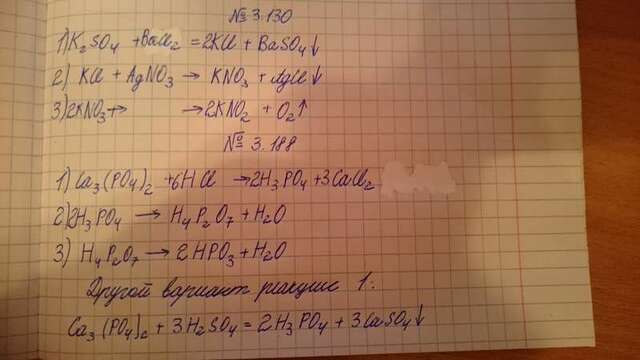 № 3.130
1) K₂SO₄ + BaCl₂ = 2KCl + BaSO₄↓
2) KCl + AgNO₃ → KNO₃ + AgCl↓
3) 2KNO₃ → → 2KNO₂ + O₂↑
№ 3.188
1) Ca₃(PO₄)₂ + 6HCl → 2H₃PO₄ + 3CaCl₂
2) 2H₃PO₄ → H₄P₂O₇ + H₂O
3) H₄P₂O₇ → 2HPO₃ + H₂O
Другой вариант реакции 1:
Ca₃(PO₄)₂ + 3H₂SO₄ = 2H₃PO₄ + 3CaSO₄↓